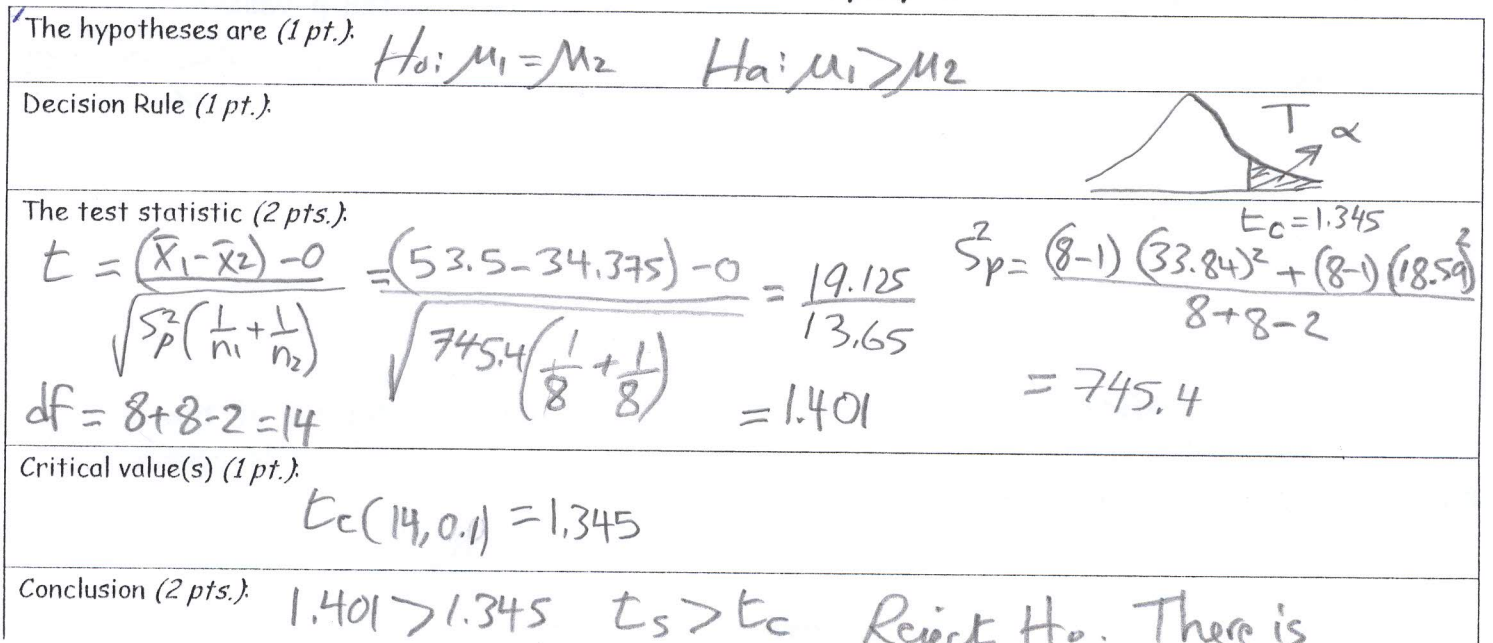 The hypotheses are (1 pt.): H₀: μ₁ = μ₂ Ha: μ₁ > μ₂
Decision Rule (1 pt.):
T α
t_c = 1.345
The test statistic (2 pts.):
t = ((x̄₁ - x̄₂) - 0) / √(S²p(1/n₁ + 1/n₂)) = ((53.5 - 34.375) - 0) / √(745.4(1/8 + 1/8)) = 19.125 / 13.65 = 1.401
S²p = ((8-1)(33.84)² + (8-1)(18.59)²) / (8+8-2) = 745.4
df = 8+8-2 = 14
Critical value(s) (1 pt.):
t_c(14, 0.1) = 1.345
Conclusion (2 pts.): 1.401 > 1.345 t_s > t_c Reject H₀. There is